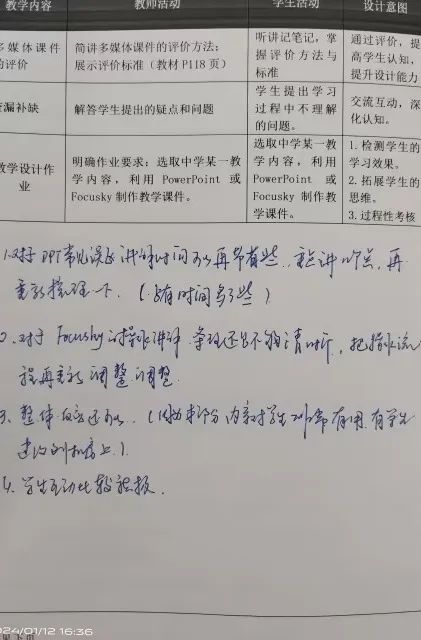 教学内容 教师活动 学生活动 设计意图
多媒体课件 简讲多媒体课件的评价方法； 听讲记笔记，掌 通过评价，提
的评价 展示评价标准（教材 P118 页） 握评价方法与 高学生认知，
标准 提升设计能力
查漏补缺 解答学生提出的疑点和问题 学生提出学习 交流互动，深
过程中不理解 化认知。
的问题。
教学设计作 明确作业要求：选取中学某一教 选取中学某一教 1. 检测学生的
业 学内容，利用 PowerPoint 或 学内容，利用 学习效果。
Focusky 制作教学课件。 PowerPoint 或 2. 拓展学生的
Focusky 制作教 思维。
学课件。 3. 过程性考核
1. 对于 PPT 常见误区 讲的时间可以再节省些，重点讲 几点，再
重新梳理一下。（ 有时间多了些 ）
2. 对于 Focusky 的操作讲解 条理还是不够清晰，把操作流
程再重新调整调整
3、整体 还可以。（ 部分内容对学生 非常有用 有学生
建议到机房上）.
4. 学生互动比较积极.
2024/01/12 16:36